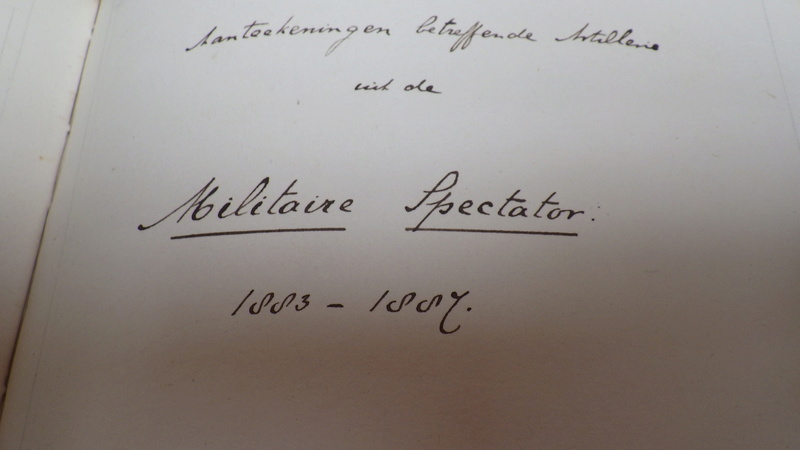 Aanteekeningen betreffende Artillerie
uit de
Militaire Spectator.
1883 - 1887.